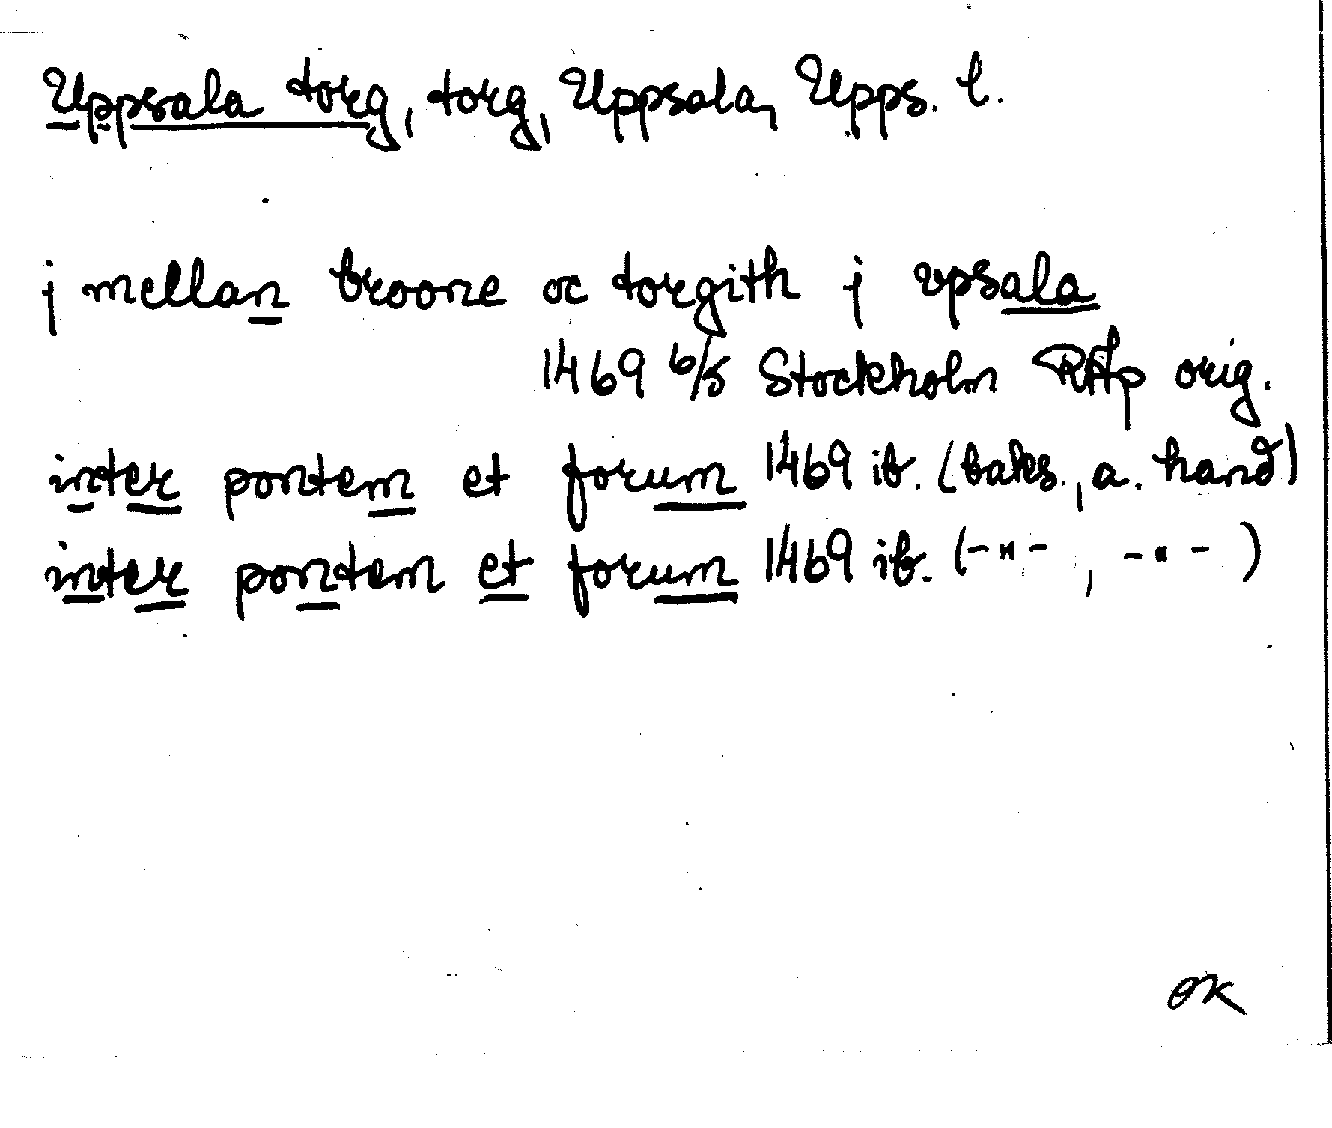 Uppsala torg, torg, Uppsala, Upps. l.
j mellan broone oc torgith j vpsala
1469 6/5 Stockholm RAp orig.
inter pontem et forum 1469 ib. (baks., a. hand)
inter pontem et forum 1469 ib. (-"-, -"-)